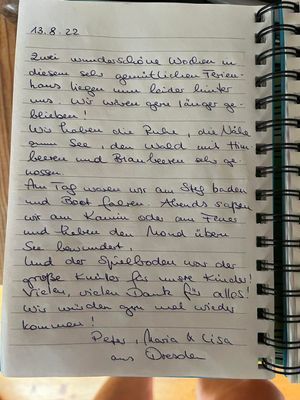 13.8.22
Zwei wunderschöne Wochen in
diesem sehr gemütlichen Ferien-
haus liegen nun leider hinter
uns. Wir wären gern länger ge-
blieben!
Wir haben die Ruhe, die Nähe
zum See, den Wald mit Him
beeren und Blaubeeren sehr ge-
nossen.
Am Tag waren wir am Steg baden
und Boot fahren. Abends saßen
wir am Kamin oder am Feuer
und haben den Mond überm
See bewundert.
Und der Spielboden war der
große Knüller für unsre Kinder!
Vielen, vielen Dank für alles!
Wir würden gern mal wieder
kommen!
Peter, Maria & Lisa
aus Dresden